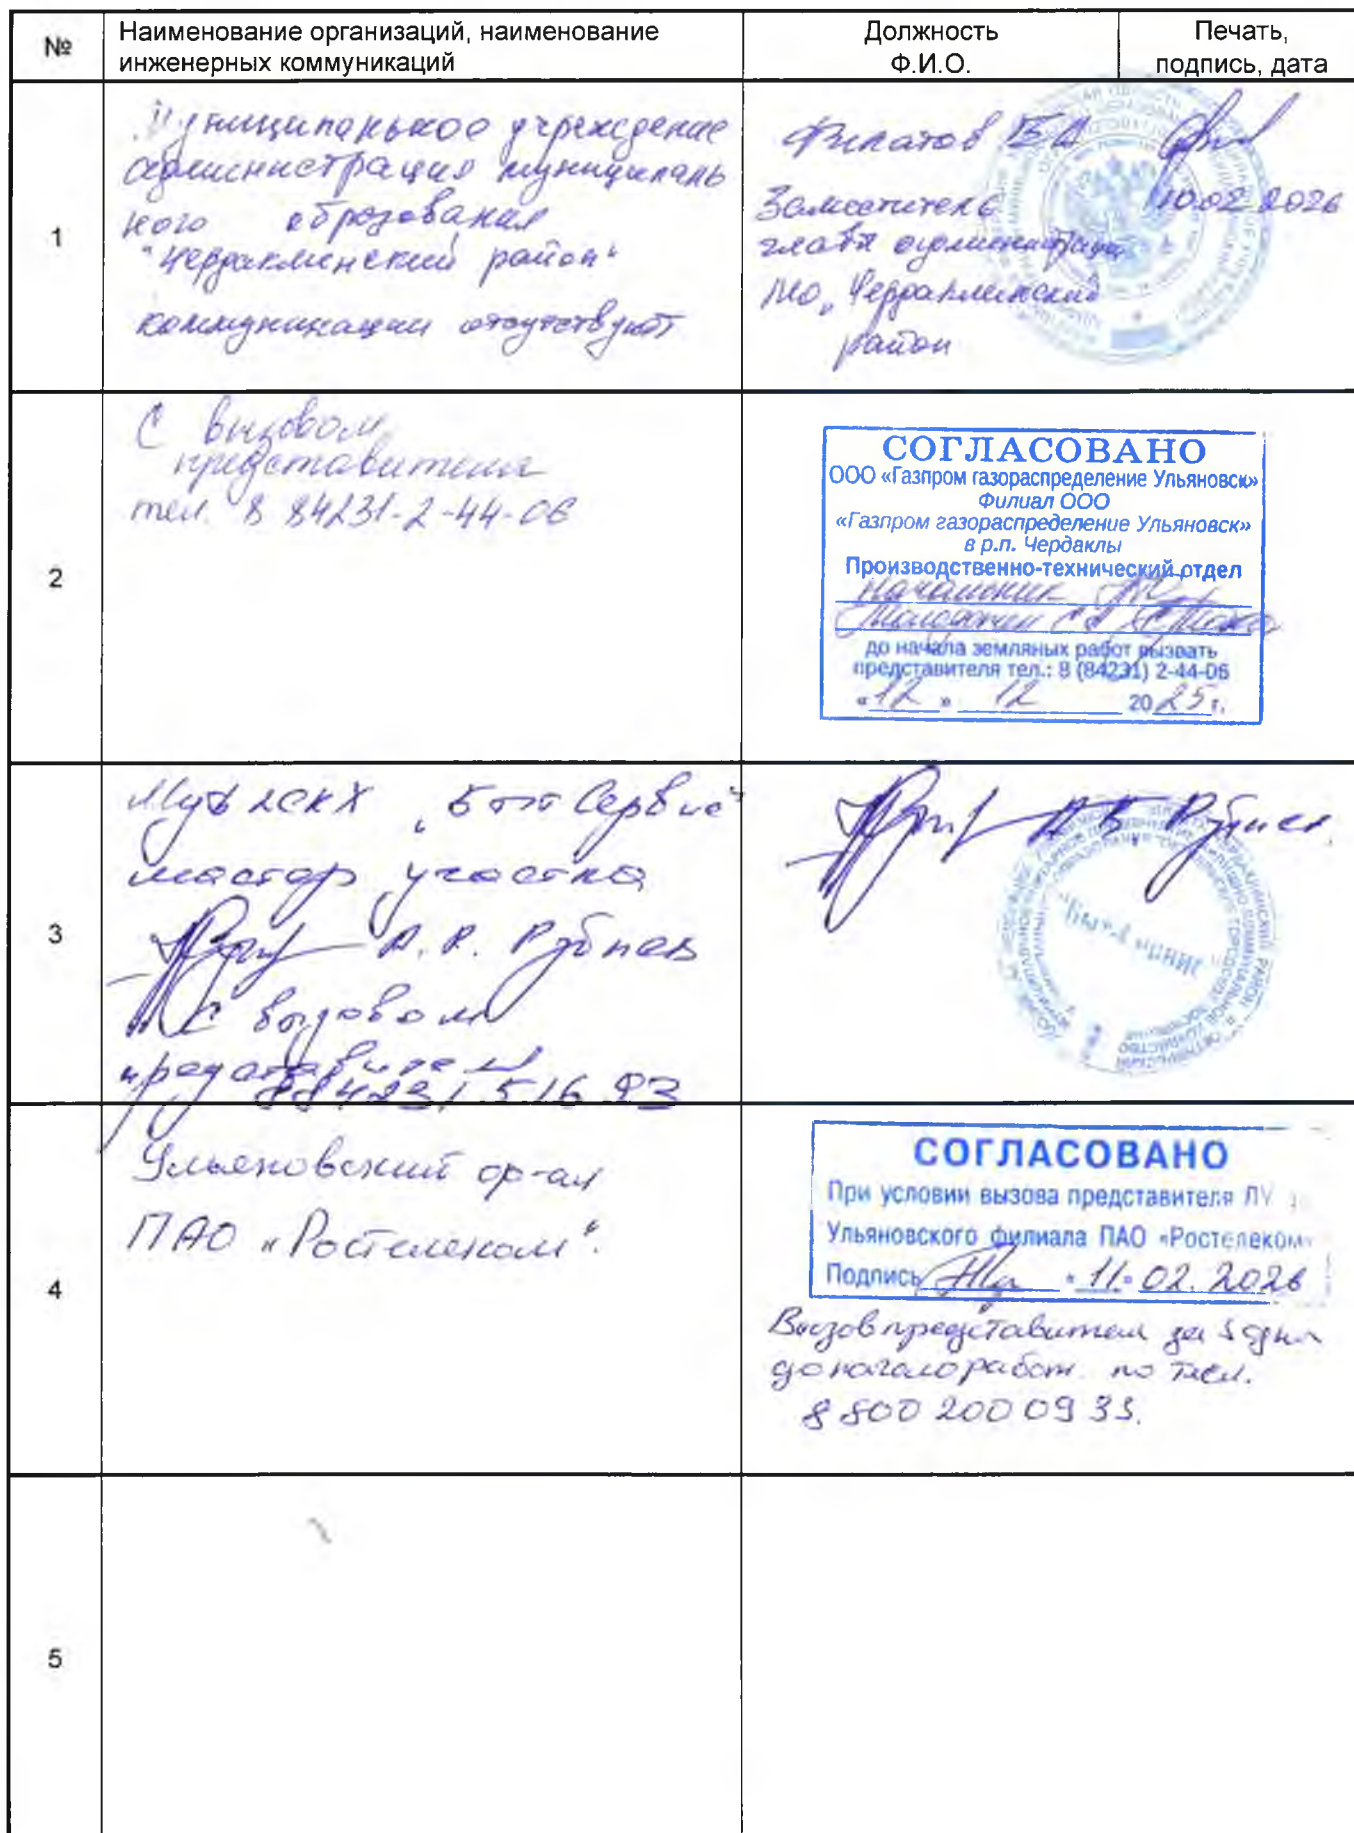 №
Наименование организаций, наименование
инженерных коммуникаций
Должность
Ф.И.О.
Печать,
подпись, дата
1
Муниципальное учреждение
администрация муниципаль
ного образования
"Чердаклинский район"
коммуникации отсутствуют
Филатов
Заместитель
10.02.2026
главы администрации
МО "Чердаклинский
район
2
С вызовом
представителя
тел. 8 84231-2-44-06
СОГЛАСОВАНО
ООО «Газпром газораспределение Ульяновск»
Филиал ООО
«Газпром газораспределение Ульяновск»
в р.п. Чердаклы
Производственно-технический отдел
Начальник
до начала земляных работ вызвать
представителя тел.: 8 (84231) 2-44-06
«12» 12 2025 г.
3
ЖКХ "Бытсервис"
мастер участка
С вызовом
представителя
884231 516 93
4
Ульяновский ф-ал
ПАО "Ростелеком".
СОГЛАСОВАНО
При условии вызова представителя ЛУ
Ульяновского филиала ПАО «Ростелеком»
Подпись "11" 02. 2026
Вызов представителя за 5 дня
до начало работ по тел.
8 800 200 09 33.
5